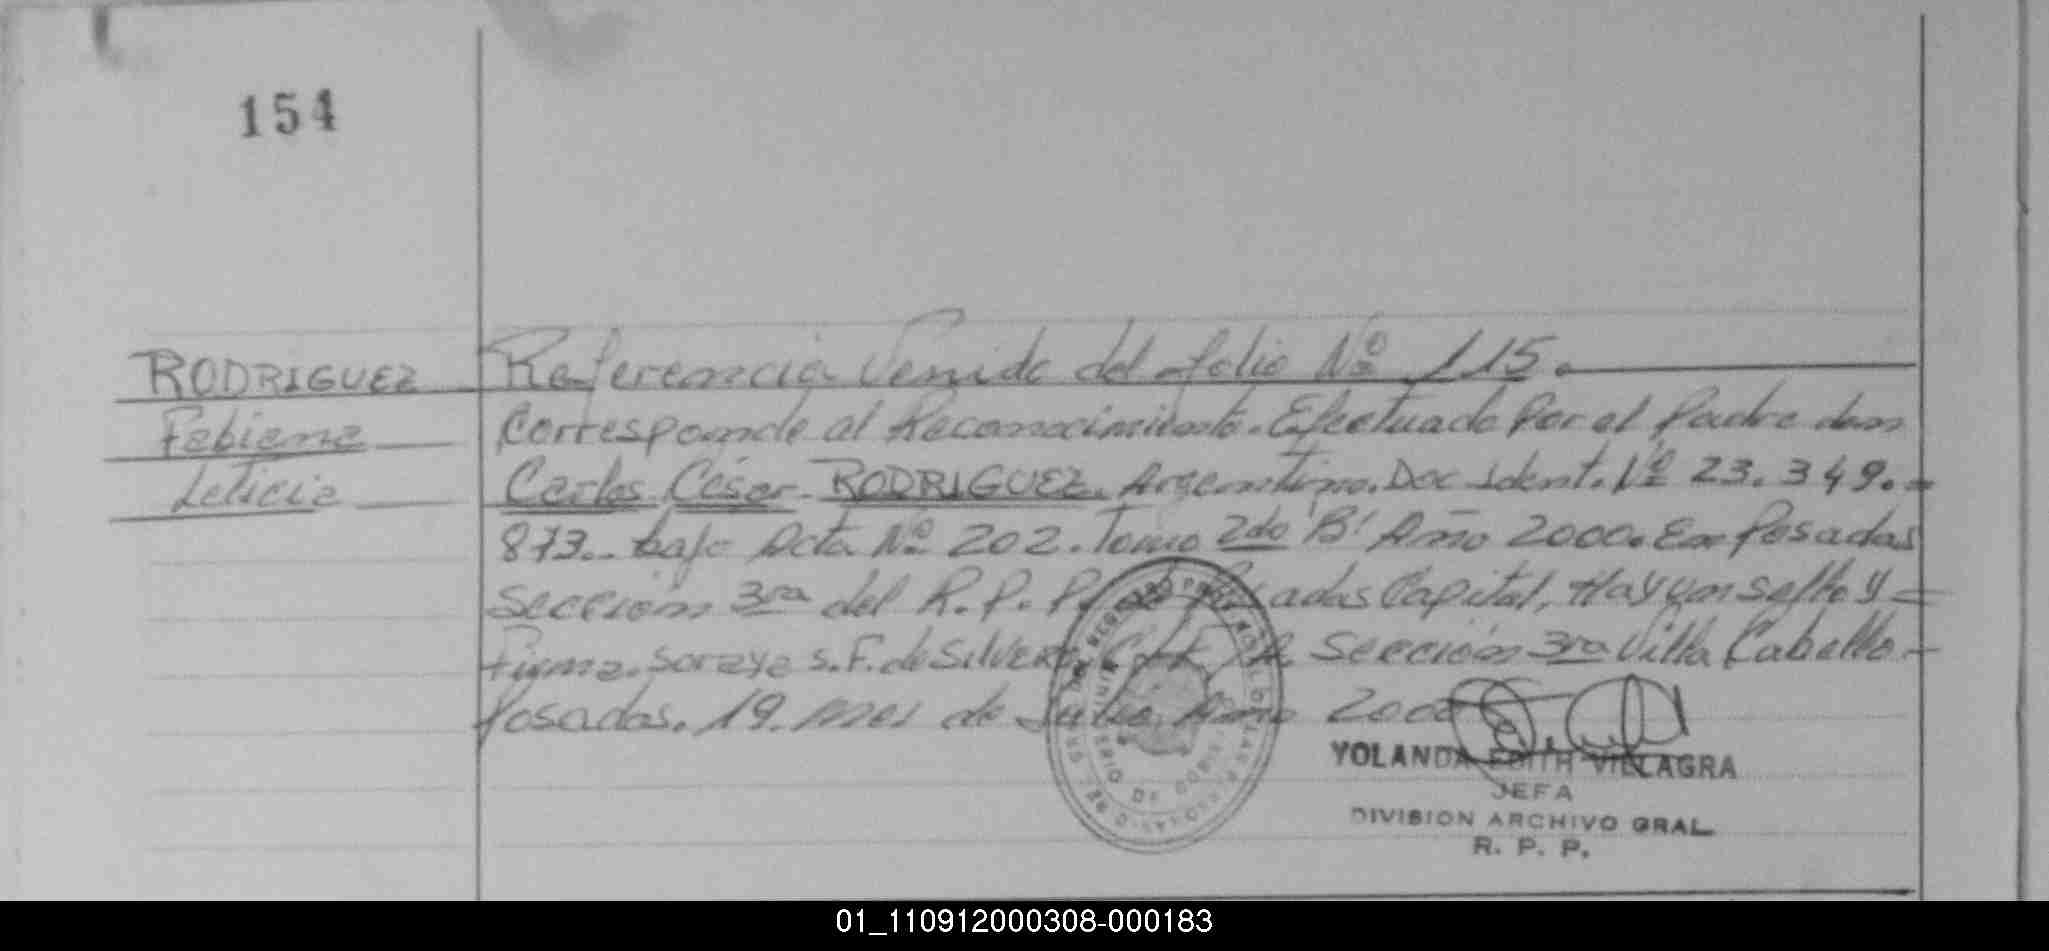 154
RODRIGUEZ
Fabiana
Leticia
Referencia Venida del folio Nº 115.
Corresponde al Reconocimiento. Efectuado Por el Padre don
Carlos César RODRIGUEZ. Argentino. Doc. Ident. Nº 23.349.=
873.- bajo Acta Nº 202. Tomo 2do 'B' Año 2000. En Posadas
Sección 3ra del R.P.P. Posadas Capital, Hay un sello y =
Firma. Soraya S.F. de Silvera Sección 3ra Villa Cabello.-
Posadas. 19. mes de Julio Año 2000
YOLANDA EDITH VILLAGRA
JEFA
DIVISION ARCHIVO GRAL
R. P. P.
01_110912000308-000183